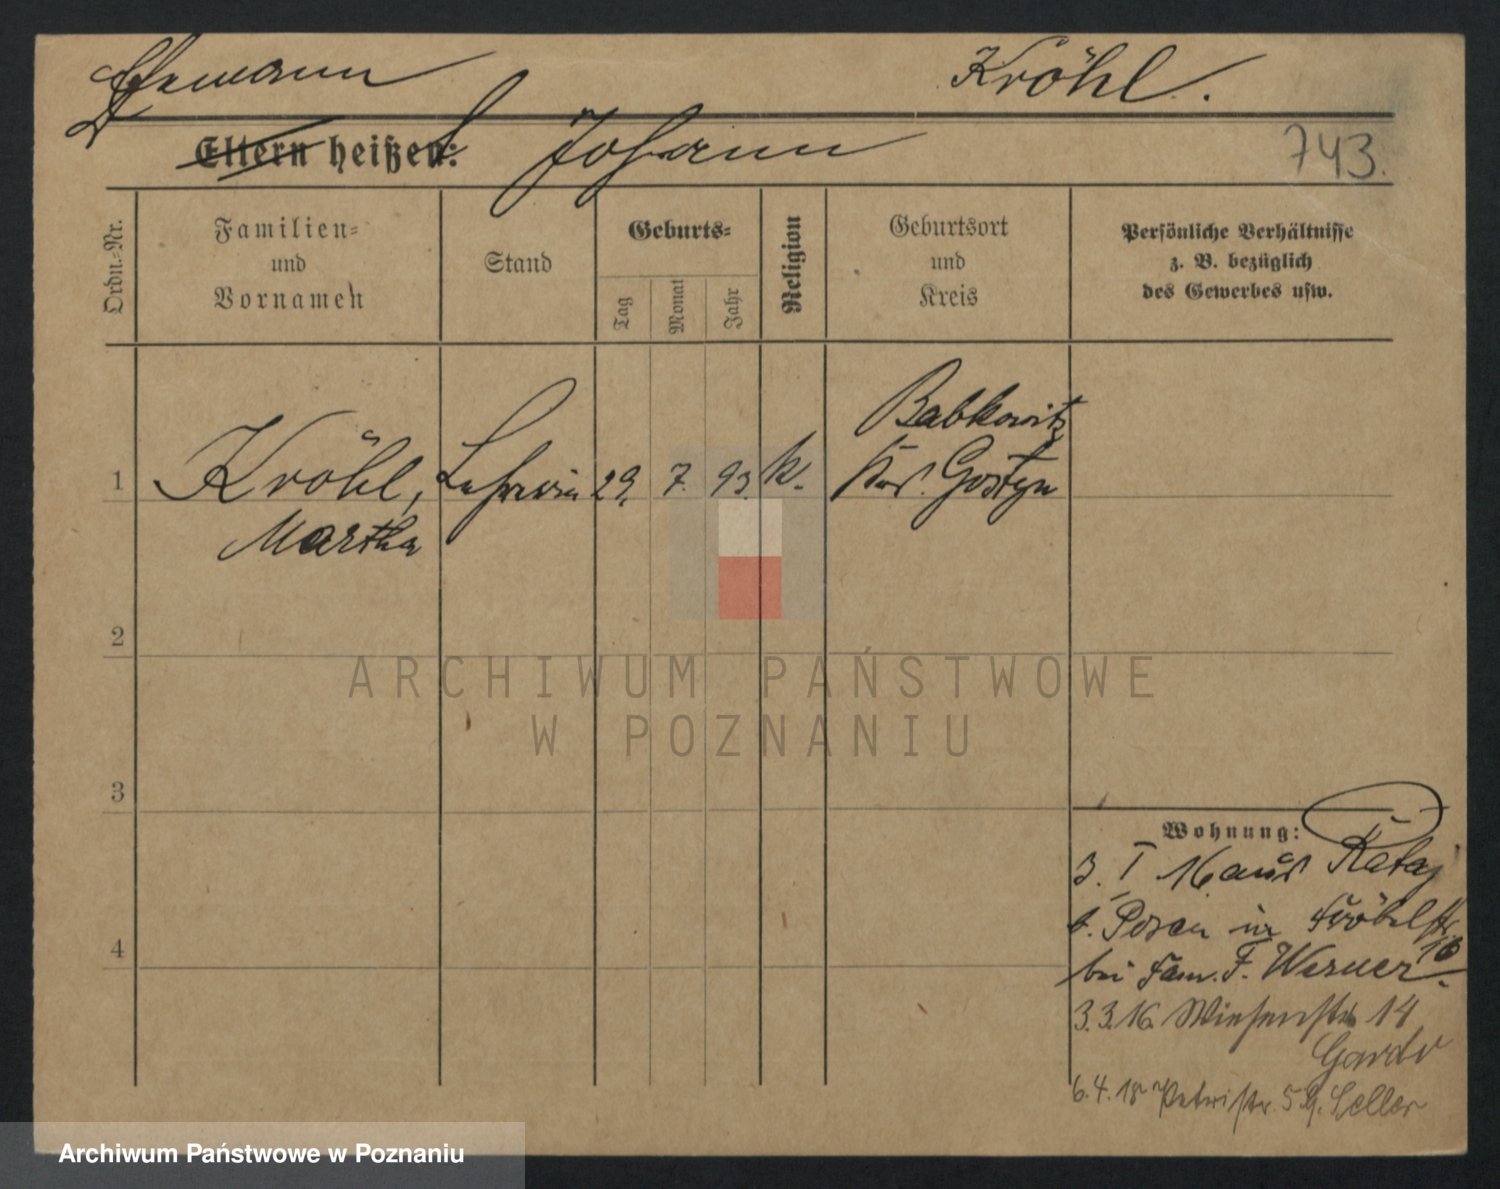 Ehemann Kröhl.
Eltern heißen: Johann
743.
Ordn.-Nr.
Familien-
und
Vornamen
Stand
Geburts-
Tag
Monat
Jahr
Religion
Geburtsort
und
Kreis
Persönliche Verhältnisse
z. B. bezüglich
des Gewerbes usw.
1 Kröhl, Lehrerin 29. 7. 93. k.
Martha
Babkowitz
Krs. Gostyn
2
3
4
Wohnung:
3. I 16 aus Rataj
b. Posen in Fröbelstr
bei Fam. F. Werner 10
3.3.16 Wiesenstr 14
6.4.18 Petristr. 5
ARCHIWUM PAŃSTWOWE
W POZNANIU
Archiwum Państwowe w Poznaniu